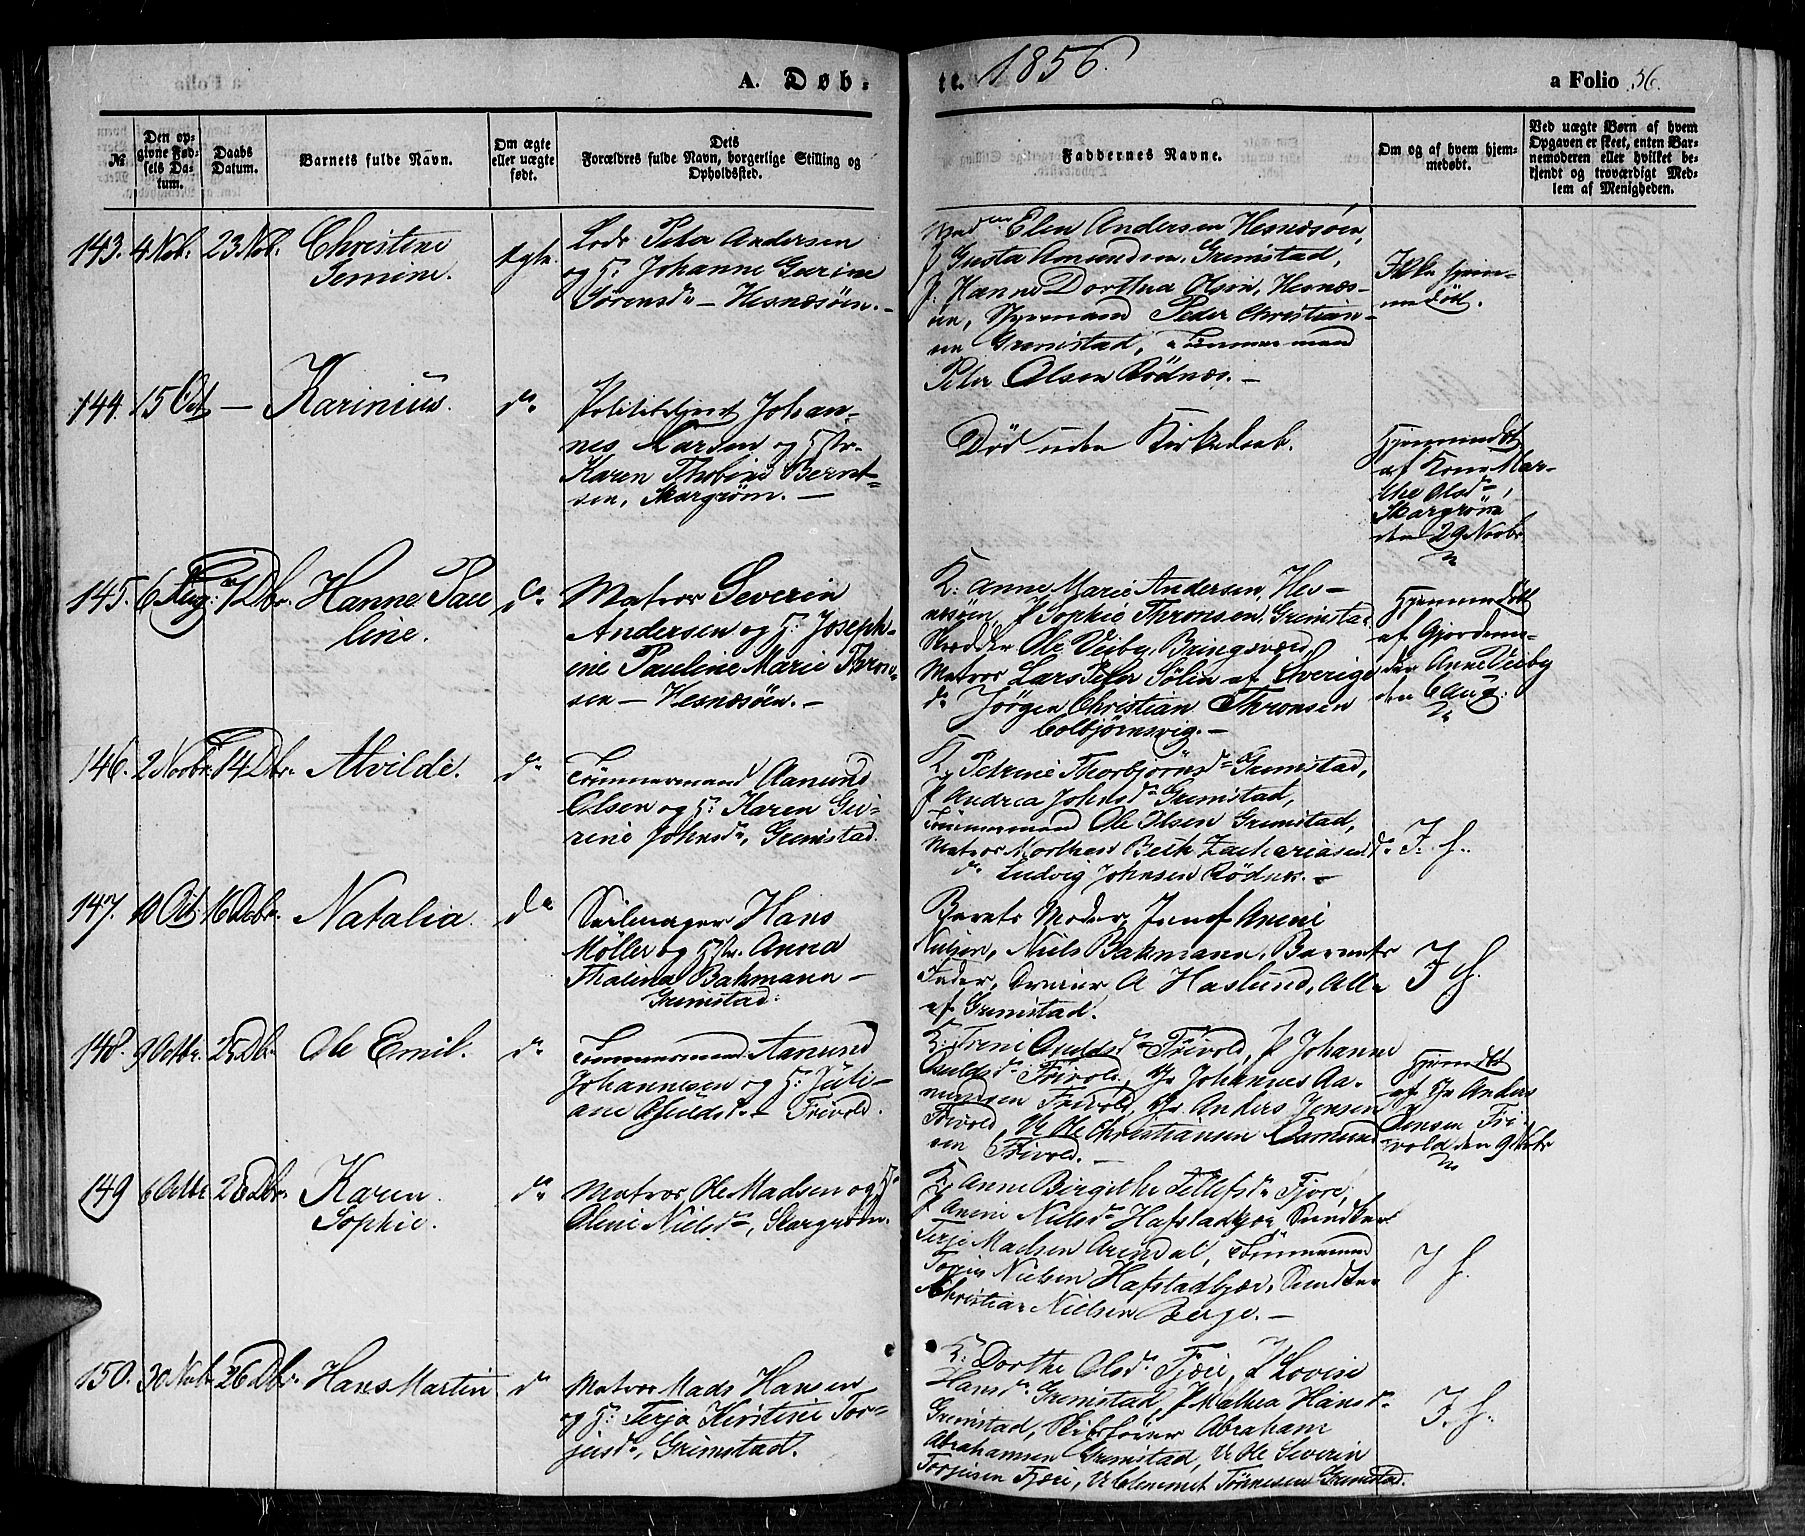 A. Døb-
te. 1856.
a Folio 56.
No.
Den op-
givne Fød-
sels Da-
tum.
Daabs
Datum.
Barnets fulde Navn.
Om ægte
eller uægte
født.
Dets
Forældres fulde Navn, borgerlige Stilling og
Opholdssted.
Faddernes Navne.
Om og af hvem hjem-
medøbt.
Ved uægte Børn af hvem
Opgaven er skeet, enten Bar-
nemoderen eller hvilket be-
kjendt og troværdigt Med-
lem af Menigheden.
143. 4 Nob. 23 Nob. Christine
Semine.
ægte
Lods Peter Andersen
og H: Johanne Gurine
Sørensd. – Hesnæsøen. –
Elen Andersen Hesnæsøen,
P Gusta Amundsen, Grimstad,
P. Hanne Dorthea Olsen, Hesnæs-
øen, Styrmand Peder Christian-
sen Grimstad, Tømmermand
Peter Olsen Rødnæs. –
Ikke hjem-
medøbt.
144. 15 Oct – Karinius.
do
Politibetjent Johan-
nes Larsen og Hstr.
Karen Thobine Bernt-
sen, Skargrøm. –
Død uden Kirkedaab.
Hjemmedøbt
af Kone Mar-
the Olsd.,
Skargrøm
den 29 Novbr.
145. 6 Aug: 7 Dbr. Hanne Pau
line.
do
Matros Severin
Andersen og H: Joseph-
ine Pauline Marie Thron-
sen – Hesnæsøen. –
K: Anne Marie Andersen, Hes-
næsøen, P Sophie Thronsen, Grimsta-
Skrædder Ole Veiby, Bringsværd,
Matros Lars Peter Sølin af Sverige
do Jørgen Christian Thronsen
Colbjørnsvig. –
Hjemmedøbt
af Gjordemo-
der Anne Veiby
den 6 Aug:
146. 2 Novbr. 14 Dbr. Alvilde.
do
Tømmermand Aanund
Olsen og H: Karen Gu-
rine Johnsd., Grimstad.
K, Petrine Thorbjørnsd. Grimstad,
P Andrea Johnsd. Grimstad,
Tømmermand Ole Olsen Grimstad,
Matros Morthen Beth Zachariasen do
do Ludvig Johnsen Rødnes. –
I. h.
147. 10 Oct. 16 Debr. Natalia.
do
Seilmager Hans
Møller og Hstr. Anna
Thalina Bakmann –
Grimstad.
Barnets Moder, Jomf Anine
Nielsen, Niels Bakmann, Barnets
Fader, A Haslund, Alle
af Grimstad.
I h.
148. 9 Octbr. 25 Dbr. Ole Emil.
do
Tømmermand Aanund
Johannesen og H: Juli-
ane Osuldsd. – Frivold.
K: Trine Osuldsd. Frivold, P Johanne
Osuldsd. Frivold, Johannes Aa-
nundsen Frivold, Anders Jensen
Frivold, Ole Christiansen Aanund
sen Frivold. –
Hjemmedøbt
af Anders
Jensen Fri-
vold den 9 Octbr
149 6 Octbr 26 Dbr. Karen
Sophie.
do
Matros Ole Madsen og H:
Oline Nielsd., Skargrøm.
K. Anne Birgithe Tellefsd. Fjære,
P Anine Nielsd. Hafstadkjær, Snedker
Terje Madsen Arendal, Tømmermand
Torjus Nielsen Hafstadkjær, Snedker
Christian Nielsen Berge. –
I h.
150. 30 Nobr 26 Dbr. Hans Martin
do
Matros Mads Hansen
og H: Terja Kirstine Tor-
jusd., Grimstad.
K: Dorthe Olsd. Fjære, P Lovise
Hansd. Grimstad, P Mathea Hansd.
Grimstad, Skibsfører Abraham
Abrahamsen Grimstad, Ole Severin
Torjusen Fjære, Clemmet Tønnesen Grimstad.
I. h.